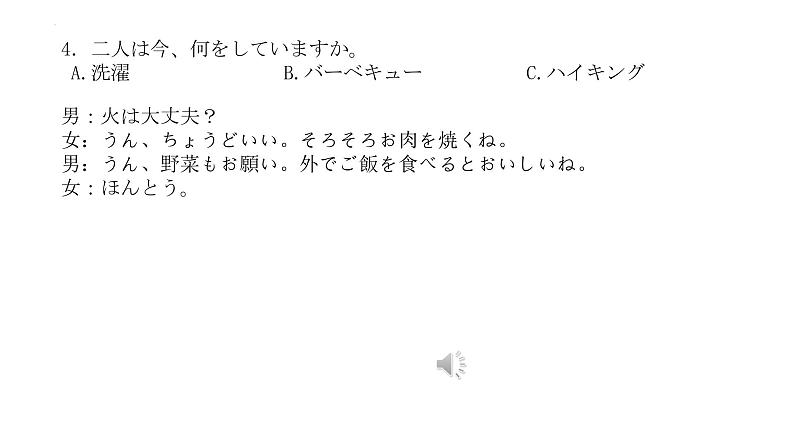 4. 二人は今、何をしていますか。
A.洗濯 B.バーベキュー C.ハイキング
男：火は大丈夫？
女：うん、ちょうどいい。そろそろお肉を焼くね。
男：うん、野菜もお願い。外でご飯を食べるとおいしいね。
女：ほんとう。